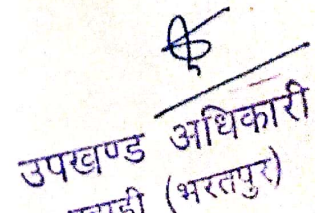 उपखण्ड अधिकारी
(भरतपुर)